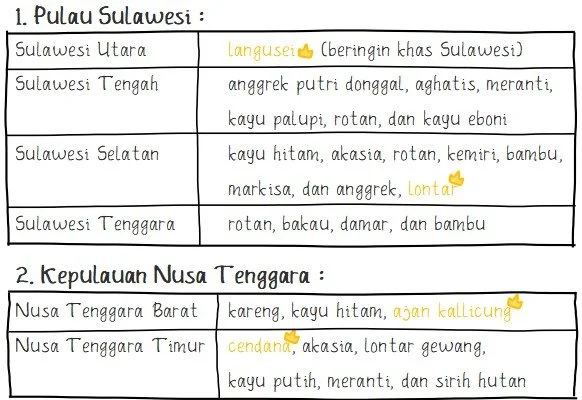 1. Pulau Sulawesi :
Sulawesi Utara langusei (beringin khas Sulawesi)
Sulawesi Tengah anggrek putri donggal, aghatis, meranti,
kayu palupi, rotan, dan kayu eboni
Sulawesi Selatan kayu hitam, akasia, rotan, kemiri, bambu,
markisa, dan anggrek, lontar
Sulawesi Tenggara rotan, bakau, damar, dan bambu
2. Kepulauan Nusa Tenggara :
Nusa Tenggara Barat kareng, kayu hitam, ajan kallicung
Nusa Tenggara Timur cendana, akasia, lontar gewang,
kayu putih, meranti, dan sirih hutan